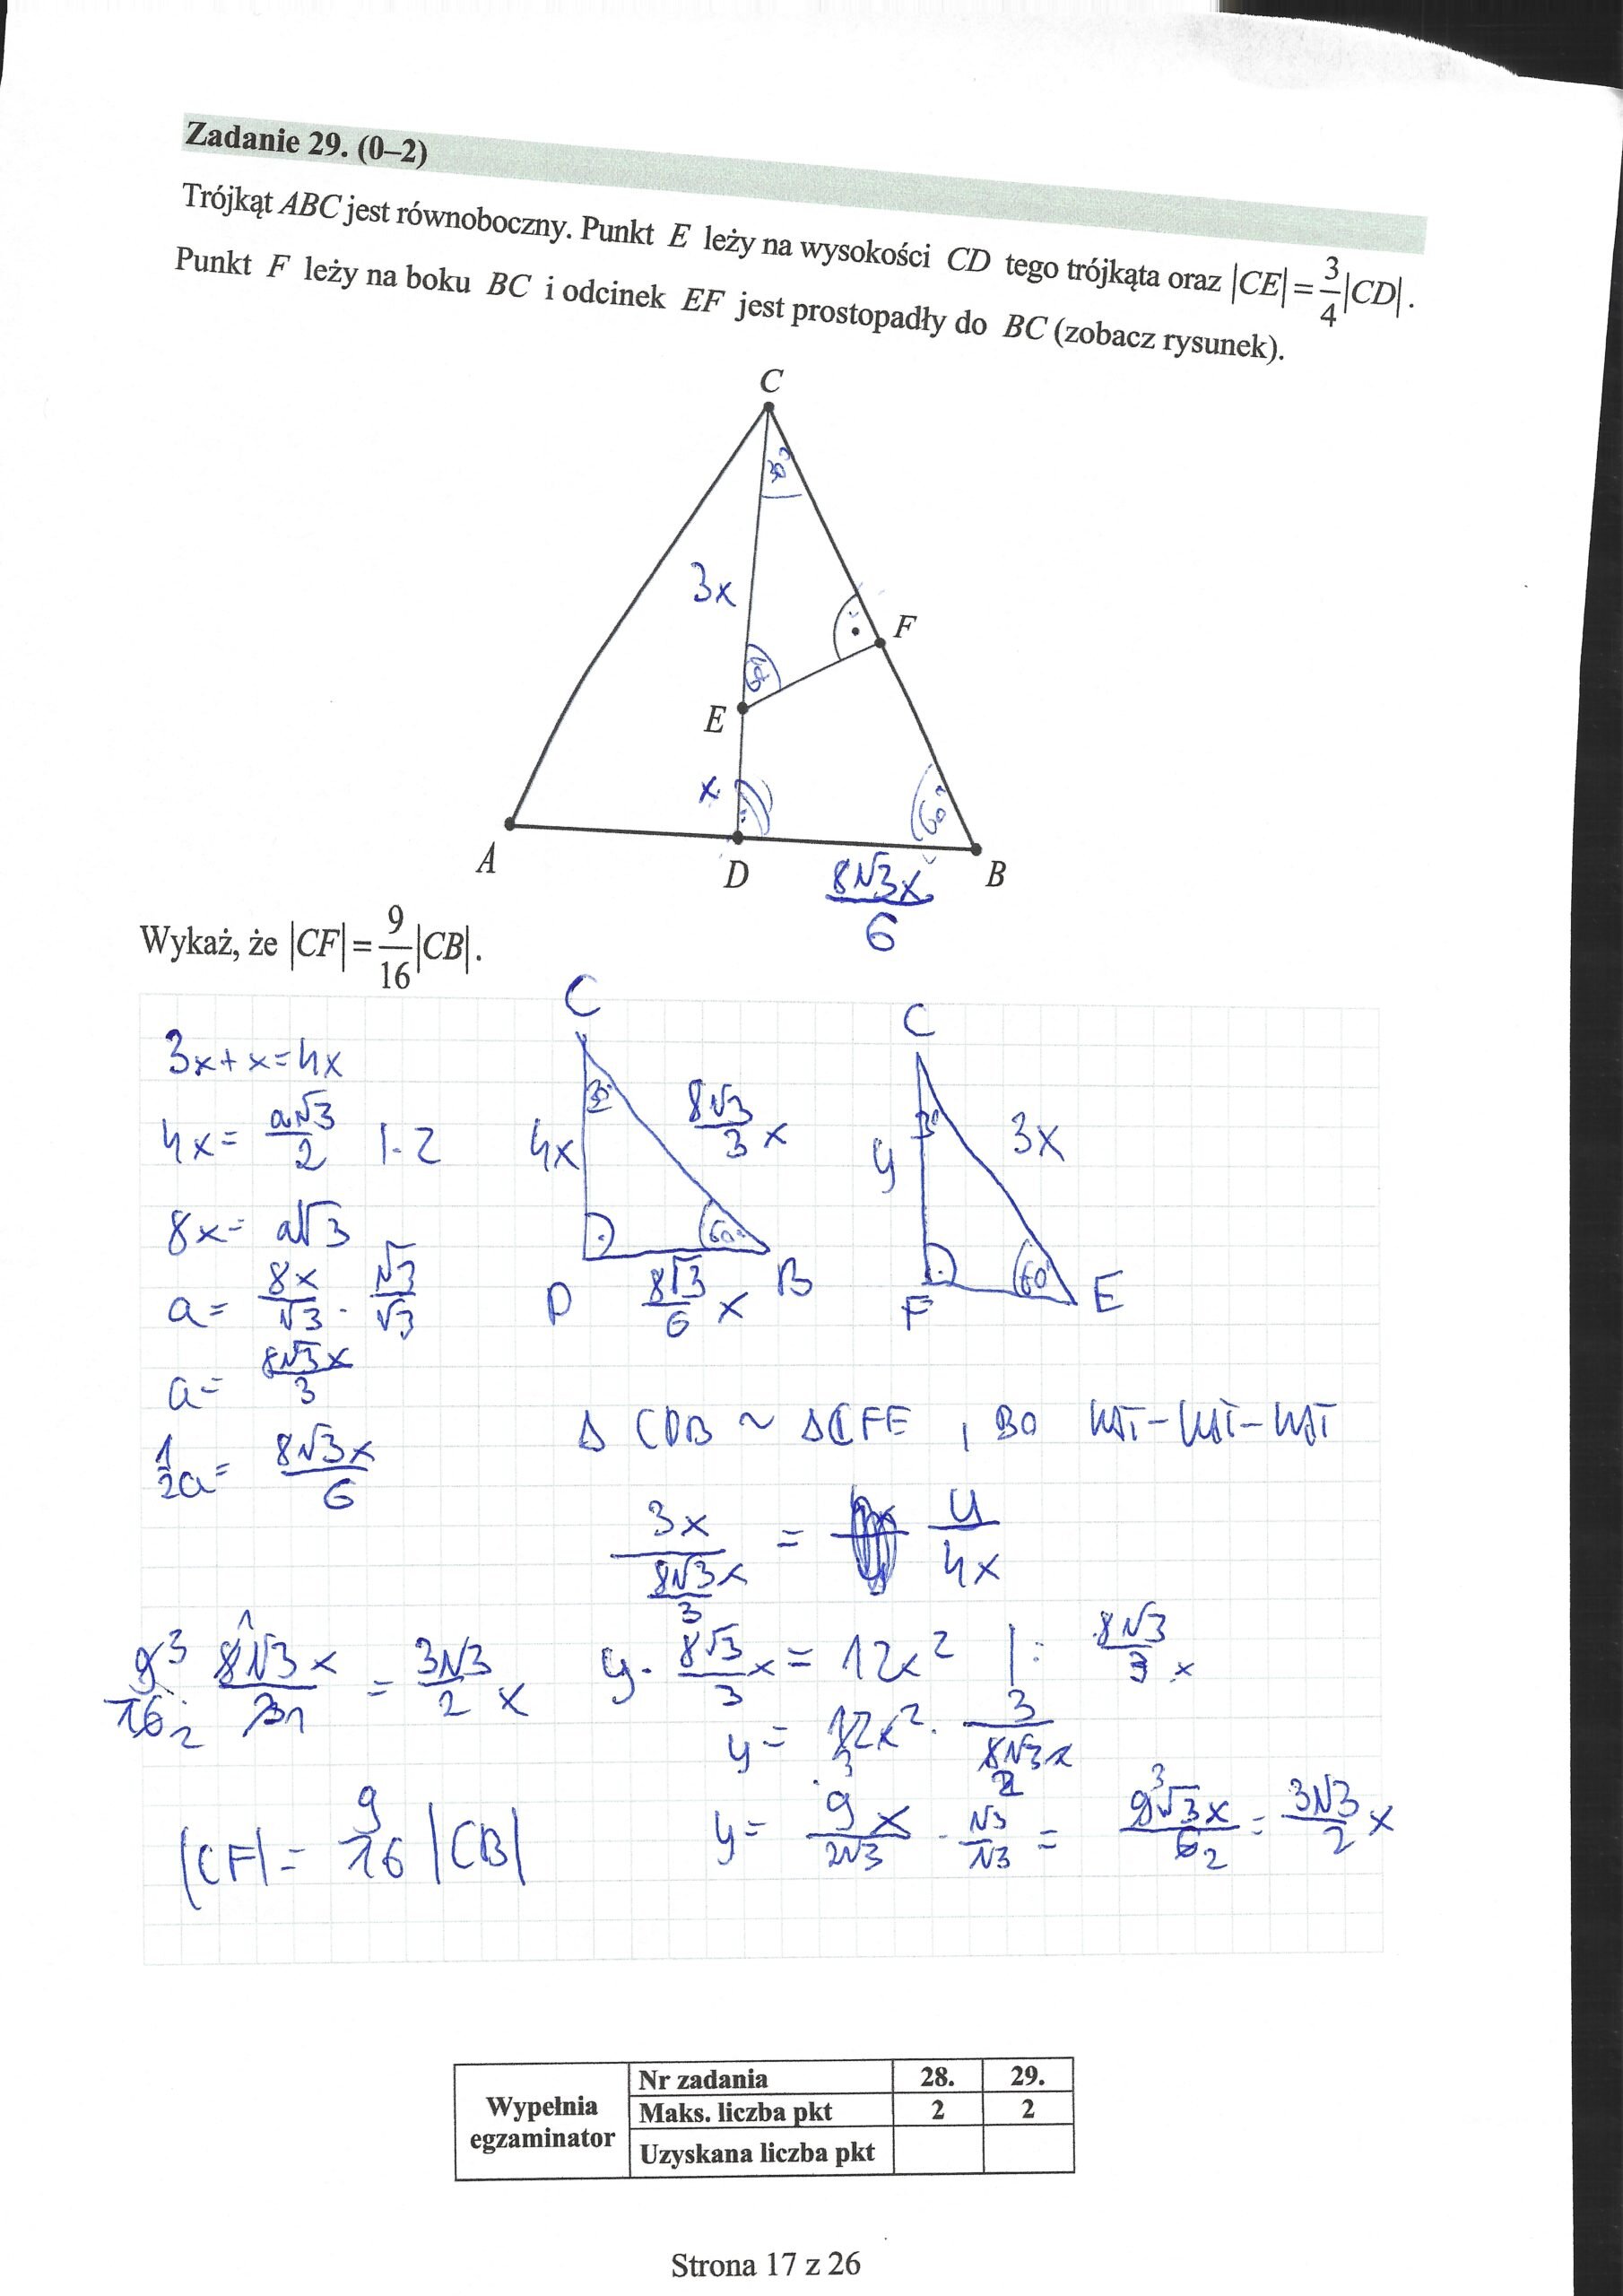 Zadanie 29. (0–2)
Trójkąt ABC jest równoboczny. Punkt E leży na wysokości CD tego trójkąta oraz |CE| = 3/4 |CD|.
Punkt F leży na boku BC i odcinek EF jest prostopadły do BC (zobacz rysunek).
C
30°
3x
F
60°
E
x
60°
A
D
B
8√3x/6
Wykaż, że |CF| = 9/16 |CB|.
3x + x = 4x
4x = a√3/2 |·2
8x = a√3
a = 8x/√3 · √3/√3
a = 8√3x/3
1/2a = 8√3x/6
C
30°
4x
8√3/3 x
60°
D
8√3/6 x
B
C
30°
y
3x
60°
F
E
Δ CDB ~ ΔCFE , BO KĄT-KĄT-KĄT
3x / (8√3x/3) = y/4x
y · 8√3/3 x = 12x² |: 8√3/3 x
y = 12x² · 3/8√3x
3 2
y = 9x/2√3 · √3/√3 = 9√3x/6 = 3√3/2 x
3 2
9/16 · 8√3x/3 = 3√3/2 x
3 1 2 1
|CF| = 9/16 |CB|
Wypełnia egzaminator
Nr zadania 28. 29.
Maks. liczba pkt 2 2
Uzyskana liczba pkt
Strona 17 z 26